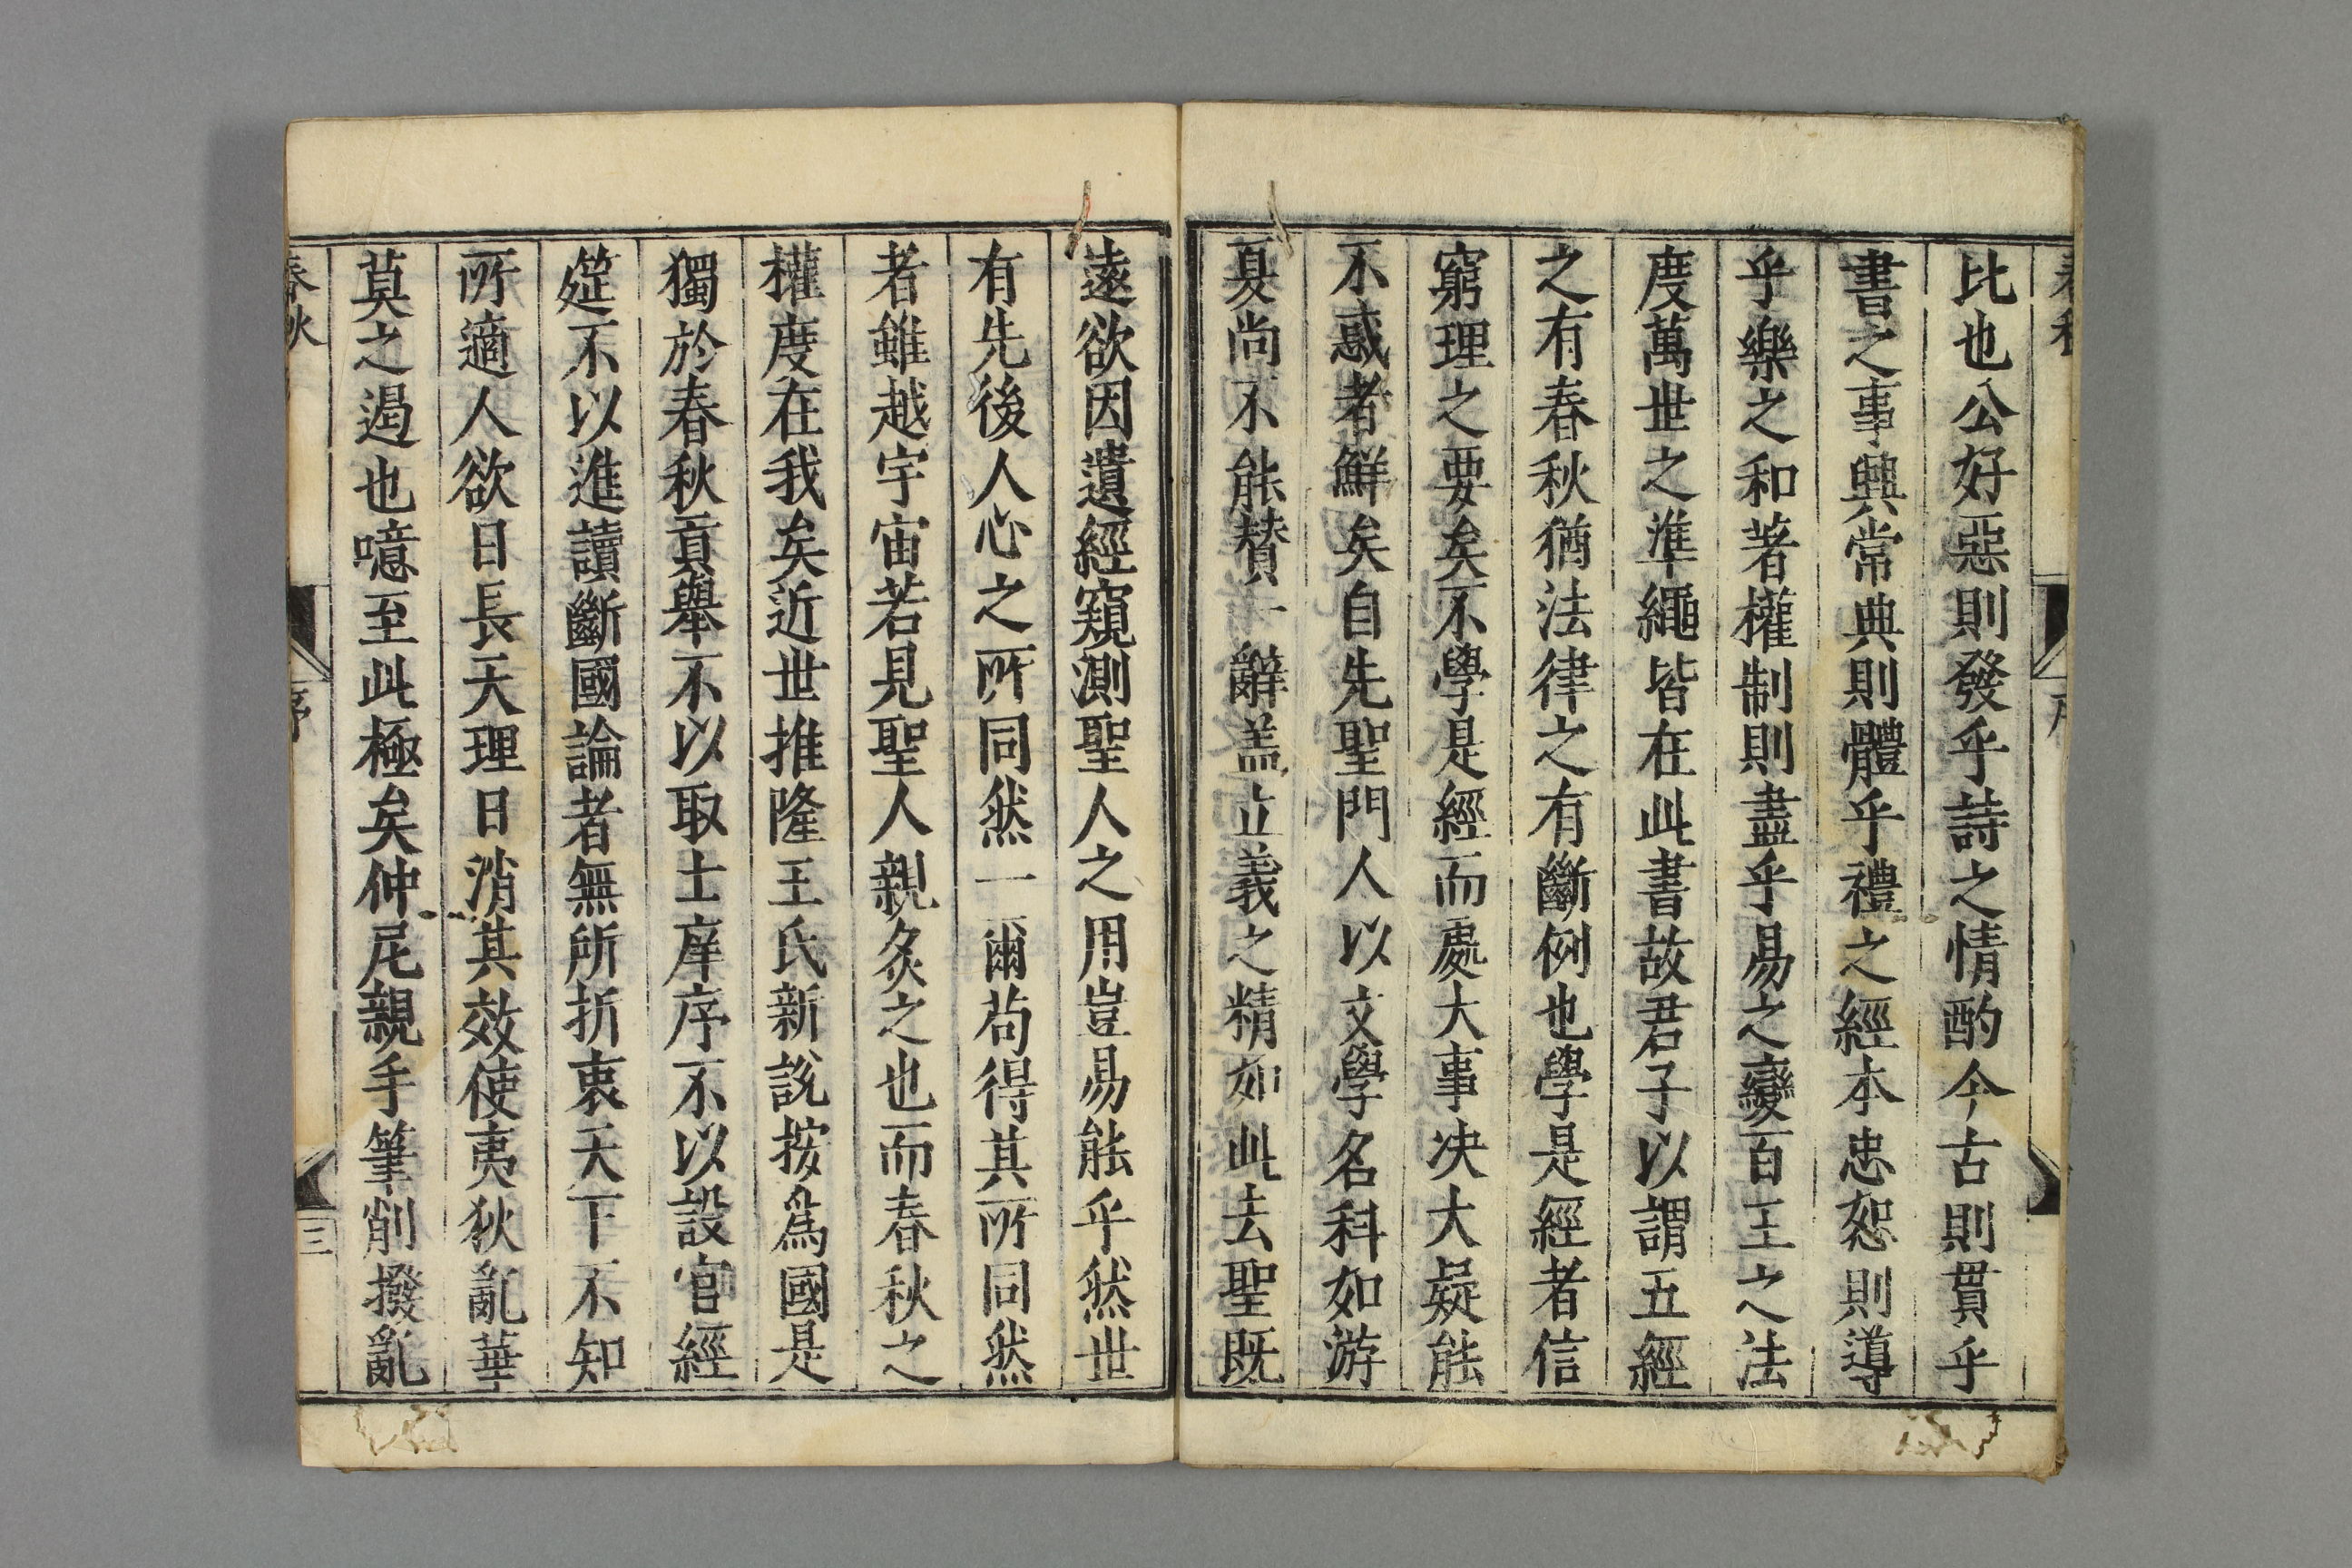 比也公好惡則發乎詩之情酌今古則貫乎
書之事興常典則體乎禮之經本忠恕則導
乎樂之和著權制則盡乎易之變百王之法
度萬世之準繩皆在此書故君子以謂五經
之有春秋猶法律之有斷例也學是經者信
窮理之要矣不學是經而處大事決大疑能
不惑者鮮矣自先聖門人以文學名科如游
夏尚不能賛一辭盖立義之精如此去聖既
遠欲因遺經窺測聖人之用豈易能乎然世
有先後人心之所同然一爾苟得其所同然
者雖越宇宙若見聖人親炙之也而春秋之
權度在我矣近世推隆王氏新說按為國是
獨於春秋貢舉不以取士庠序不以設官經
筵不以進讀斷國論者無所折衷天下不知
所適人欲日長天理日消其效使夷狄亂華
莫之遏也噫至此極矣仲尼親手筆削撥亂
春秋
序
三